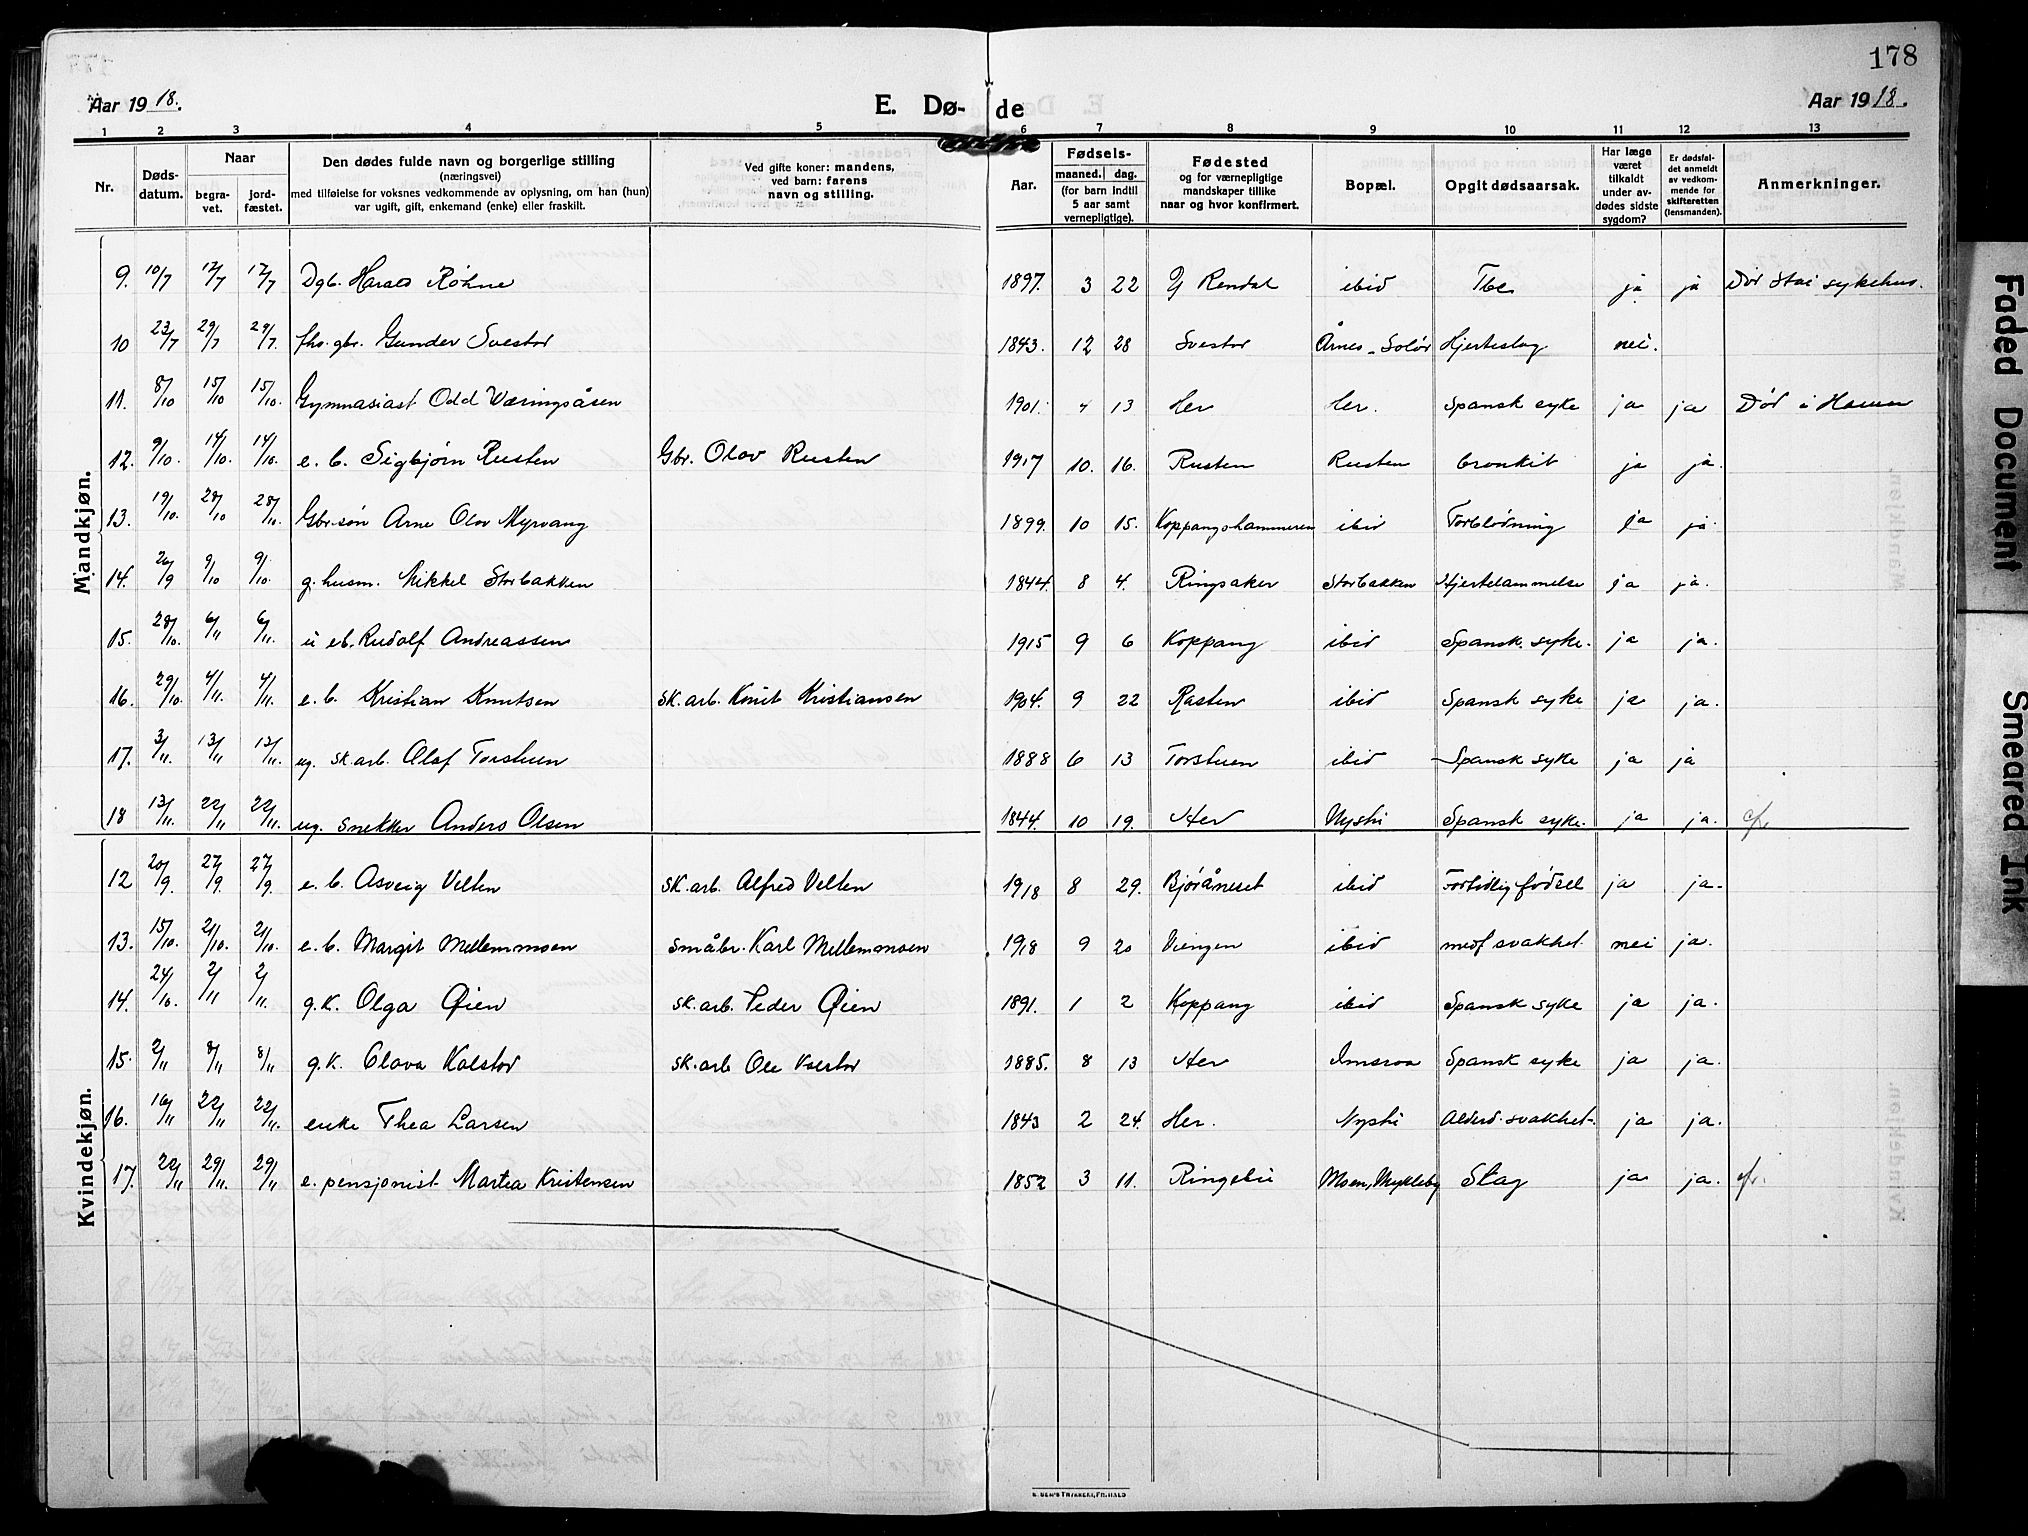 178
Aar 1918.
E. Dø- de
Aar 1918.
1 2 3 4 5 6 7 8 9 10 11 12 13
Nr.
Døds-
datum.
Naar
begra-
vet.
jord-
fæstet.
Den dødes fulde navn og borgerlige stilling
(næringsvei)
med tilføielse for voksnes vedkommende av oplysning, om han (hun)
var ugift, gift, enkemand (enke) eller fraskilt.
Ved gifte koner: mandens,
ved barn: farens
navn og stilling.
Aar.
Fødsels-
maaned. dag.
(for barn indtil
5 aar samt
vernepligtige).
Fødested
og for værnepligtige
mandskaper tillike
naar og hvor konfirmert.
Bopæl.
Opgit dødsaarsak.
Har læge
været
tilkaldt
under av-
dødes sidste
sygdom?
Er dødsfal-
det anmeldt
av vedkom-
mende for
skifteretten
(lensmanden).
Anmerkninger.
Mandkjøn.
9. 10/7 17/7 17/7 Dgb. Harald Røhne 1897. 3 22 Y Rendal ibid Tbc ja ja Død Stai sykehus.
10 23/7 29/7 29/7. fhv. gbr. Gunder Svestad 1843. 12 28 Svestad Årnes - Solør Hjerteslag nei.
11. 8/10 15/10 15/10. Gymnasiast Odd Væringsåsen 1901. 4 13 Her Her. Spansk syke ja ja Død i Hamar
12. 9/10. 14/10. 14/10. e. b. Sigbjørn Rusten Gbr. Olov Rusten 1917 10. 16. Rusten Rusten bronkit ja ja.
13. 19/10. 28/10 28/10. Gbr.søn Arne Olov Myrvang 1899. 10 15. Koppangshammeren ibid Forblødning ja ja.
14. 26/9 9/10 9/10. g. husm. Mikkel Storbakken 1844. 8 4. Ringsaker Storbakken Hjertelammelse ja ja.
15. 28/10. 6/11 6/11. u eb. Rudolf Andreassen 1915 9 6 Koppang ibid Spansk syke. ja ja.
16. 29/10. 4/11. 4/11. e. b. Kristian Knutsen sk. arb. Knut Kristiansen 1904. 9 22 Rasten ibid Spansk syke ja ja.
17. 3/11. 13/11 13/11. ug. sk. arb. Olaf Torstuen 1888 6 13 Torstuen ibid Spansk syke ja ja
18 13/11. 22/11 22/11. ug. snekker Anders Olsen 1844. 10 19. Her Nysti Spansk syke. ja ja.
Kvindekjøn.
12 20/9. 27/9. 27/9. e. b. Asveig Velten sk. arb. Alfred Velten 1918 8 29. Bjøråneset ibid Fortidlig fødsel ja ja.
13. 15/10. 21/10. 21/10. e. b. Margit Mellemmoen småbr. Karl Mellemmoen 1918 9 20 ibid medf svakhet. nei ja.
14. 24/10. 2/11 2/11. g. k. Olga Øien sk. arb. Peder Øien 1891. 1 2 Koppang ibid Spansk syke ja ja.
15. 2/11 8/11 8/11 g. k. Olava Kolstad sk. arb Ole Kolstad 1885. 8 13 Her Imsroa Spansk syke ja ja.
16. 16/11 22/11 22/11. enke Thea Larsen 1843 2 24. Her. Nysti Alderd. svakhet. ja ja.
17. 22/11 29/11. 29/11 e. pensjonist Martea Kristensen 1852 3 11. Ringebu Moen, Mykleby Slag ja ja.
Faded Document
Smeared Ink